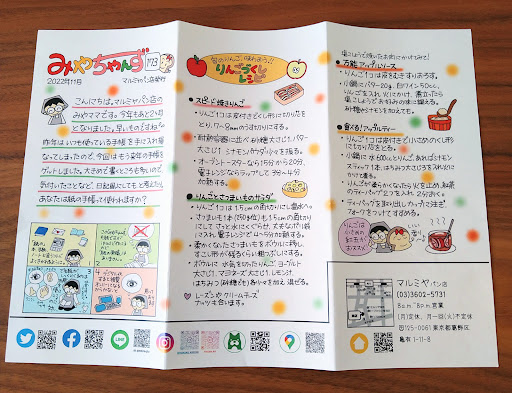 みやちゃんず
173
2022年11月
マルミヤパン店発行
こんにちは。マルミヤパン店の
みやママです。今年もあと2ヶ月
となりました。早いものですね。
昨年はいつも使っている手帳を手に入れ損
なってしまったので、今回はもう来年の手帳を
ゲットしました。大きめで書くところも多いので、
気付いたことなど、日記風にしてもと考え中。
あなたは紙の手帳って使われますか?
旬のりんご、味わおう!!
りんごづくし
レシピ
● スピード焼きりんご
・りんご1コは皮付きくし形に切り芯を
とり、7〜8mmのうす切りにする。
・耐熱容器に並べ砂糖大さじ1、バター
大さじ1、シナモンパウダー小々を振る。
・オーブントースターなら15分から20分、
電子レンジならラップして3分〜4分
が熱する。
● りんごとさつまいものサラダ
・りんご1コは1.5cmの角切りにし塩水へ。
・さつまいも1本(250g位)も1.5cmの角切
にして さっと水にくぐらせ、大夫なポリ袋
に入れ 電子レンジで4〜5分が熱する。
・柔らかくなったさつまいもをボウルに移し、
すこし形が残るくらい粗つぶしにする。
・ボウルに 水気を切ったりんご、ヨーグルト
大さじ1、マヨネーズ大さじ1、レモン汁、
はちみつ(砂糖でも)各小々を加え混ぜる。
レーズンや クリームチーズ
ナッツも合います。
塩こしょうで焼いたお肉にかけてみて!
● 万能アップルソース
・りんご1コは皮をむきすりおろす。
・小鍋にバター20g、白ワイン50cc、
りんごを入れ火にかけ、煮立ったら
塩こしょうでお好みの味に整える。
砂糖やシナモンを加えても。
● 食べる!アップルティー
・りんご1コは皮付きで小さめのくし形
に切る。
・小鍋に水600cc とりんご、あればシナモン
スティック1本、はちみつ大さじ3を入れ火に
かけて煮る。
・りんごが柔らかくなったら火を止め、紅茶
のティーバッグ2つを入れ、2分おく。
・ティーバッグを取り出しカップに注ぎ
フォークをつけてすすめる。
りんごは
小さめの
紅玉が
おススメ
???
マルミヤパン店
(03)3602-5731
8a.m.〜8p.m. 営業
(月)定休、月一回(火)不定休
〒125-0061 東京都葛飾区
亀有1-11-8
LINE